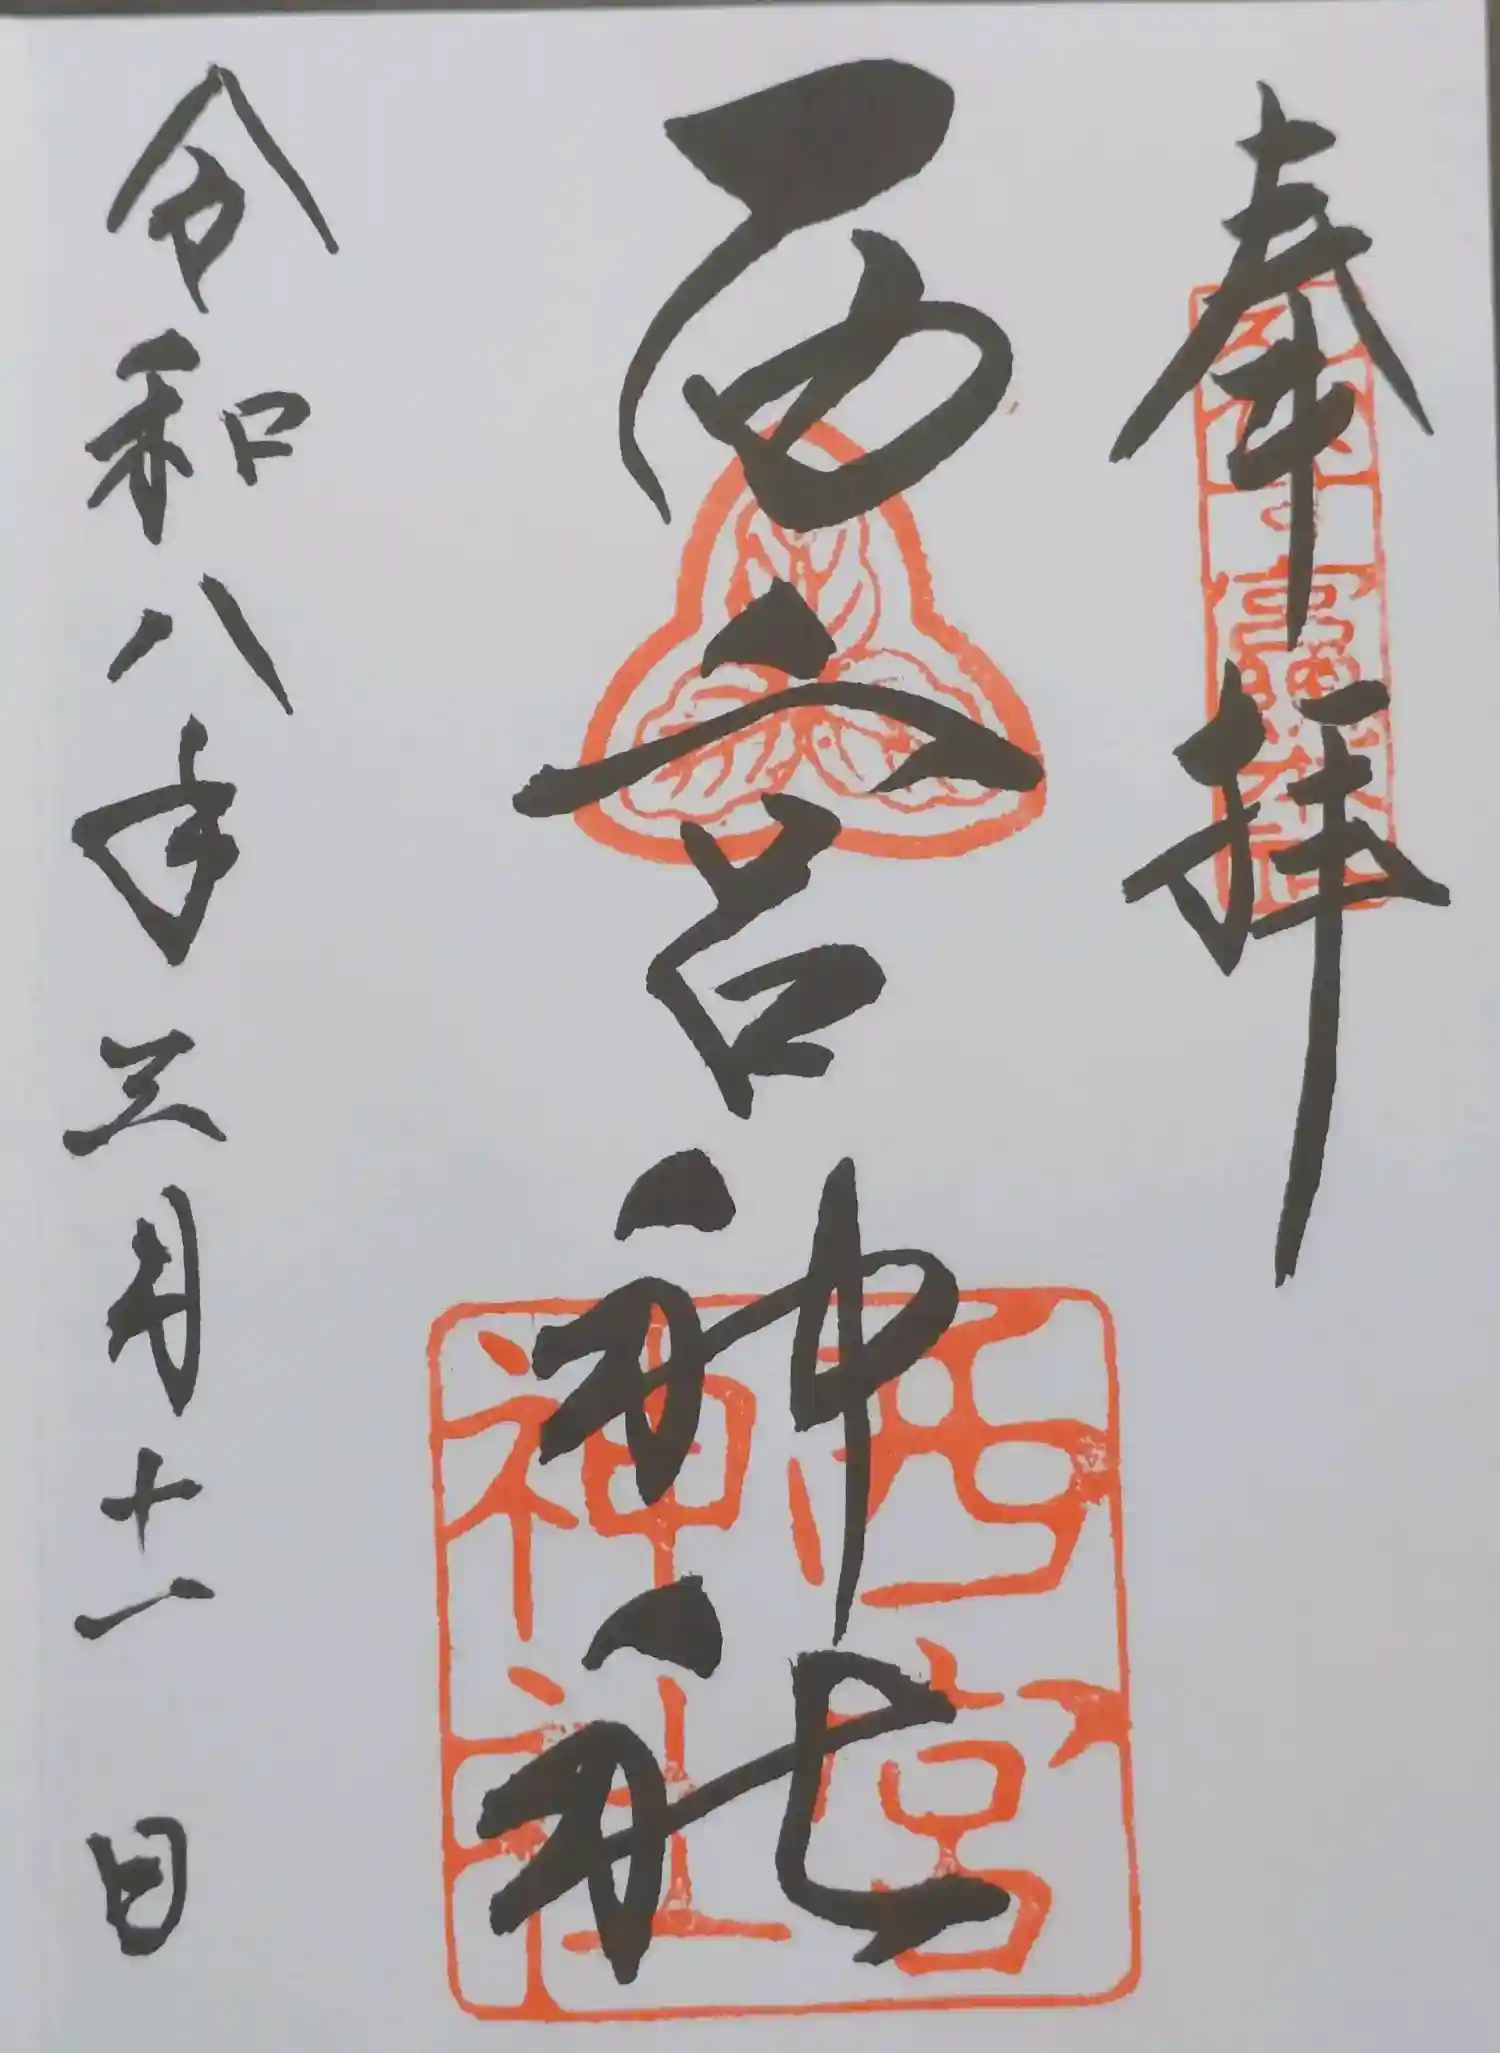 奉拝
西宮神社
西宮
神社
令和八年三月十一日